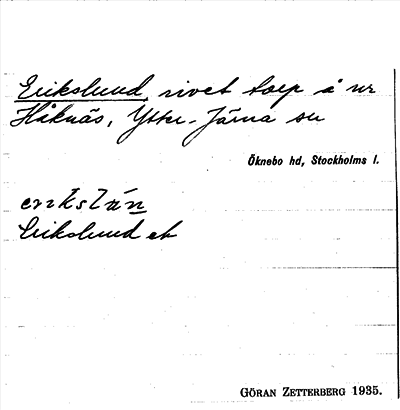 Erikslund, rivet torp å nr
Håknäs, Ytter-Järna sn
Öknebo hd, Stockholms l.
Erikslund et
GÖRAN ZETTERBERG 1935.